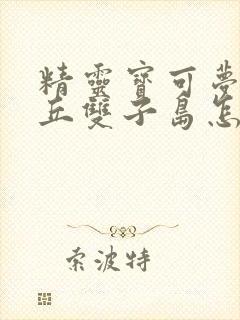 精靈寶可夢
丘雙子島怎
索波特